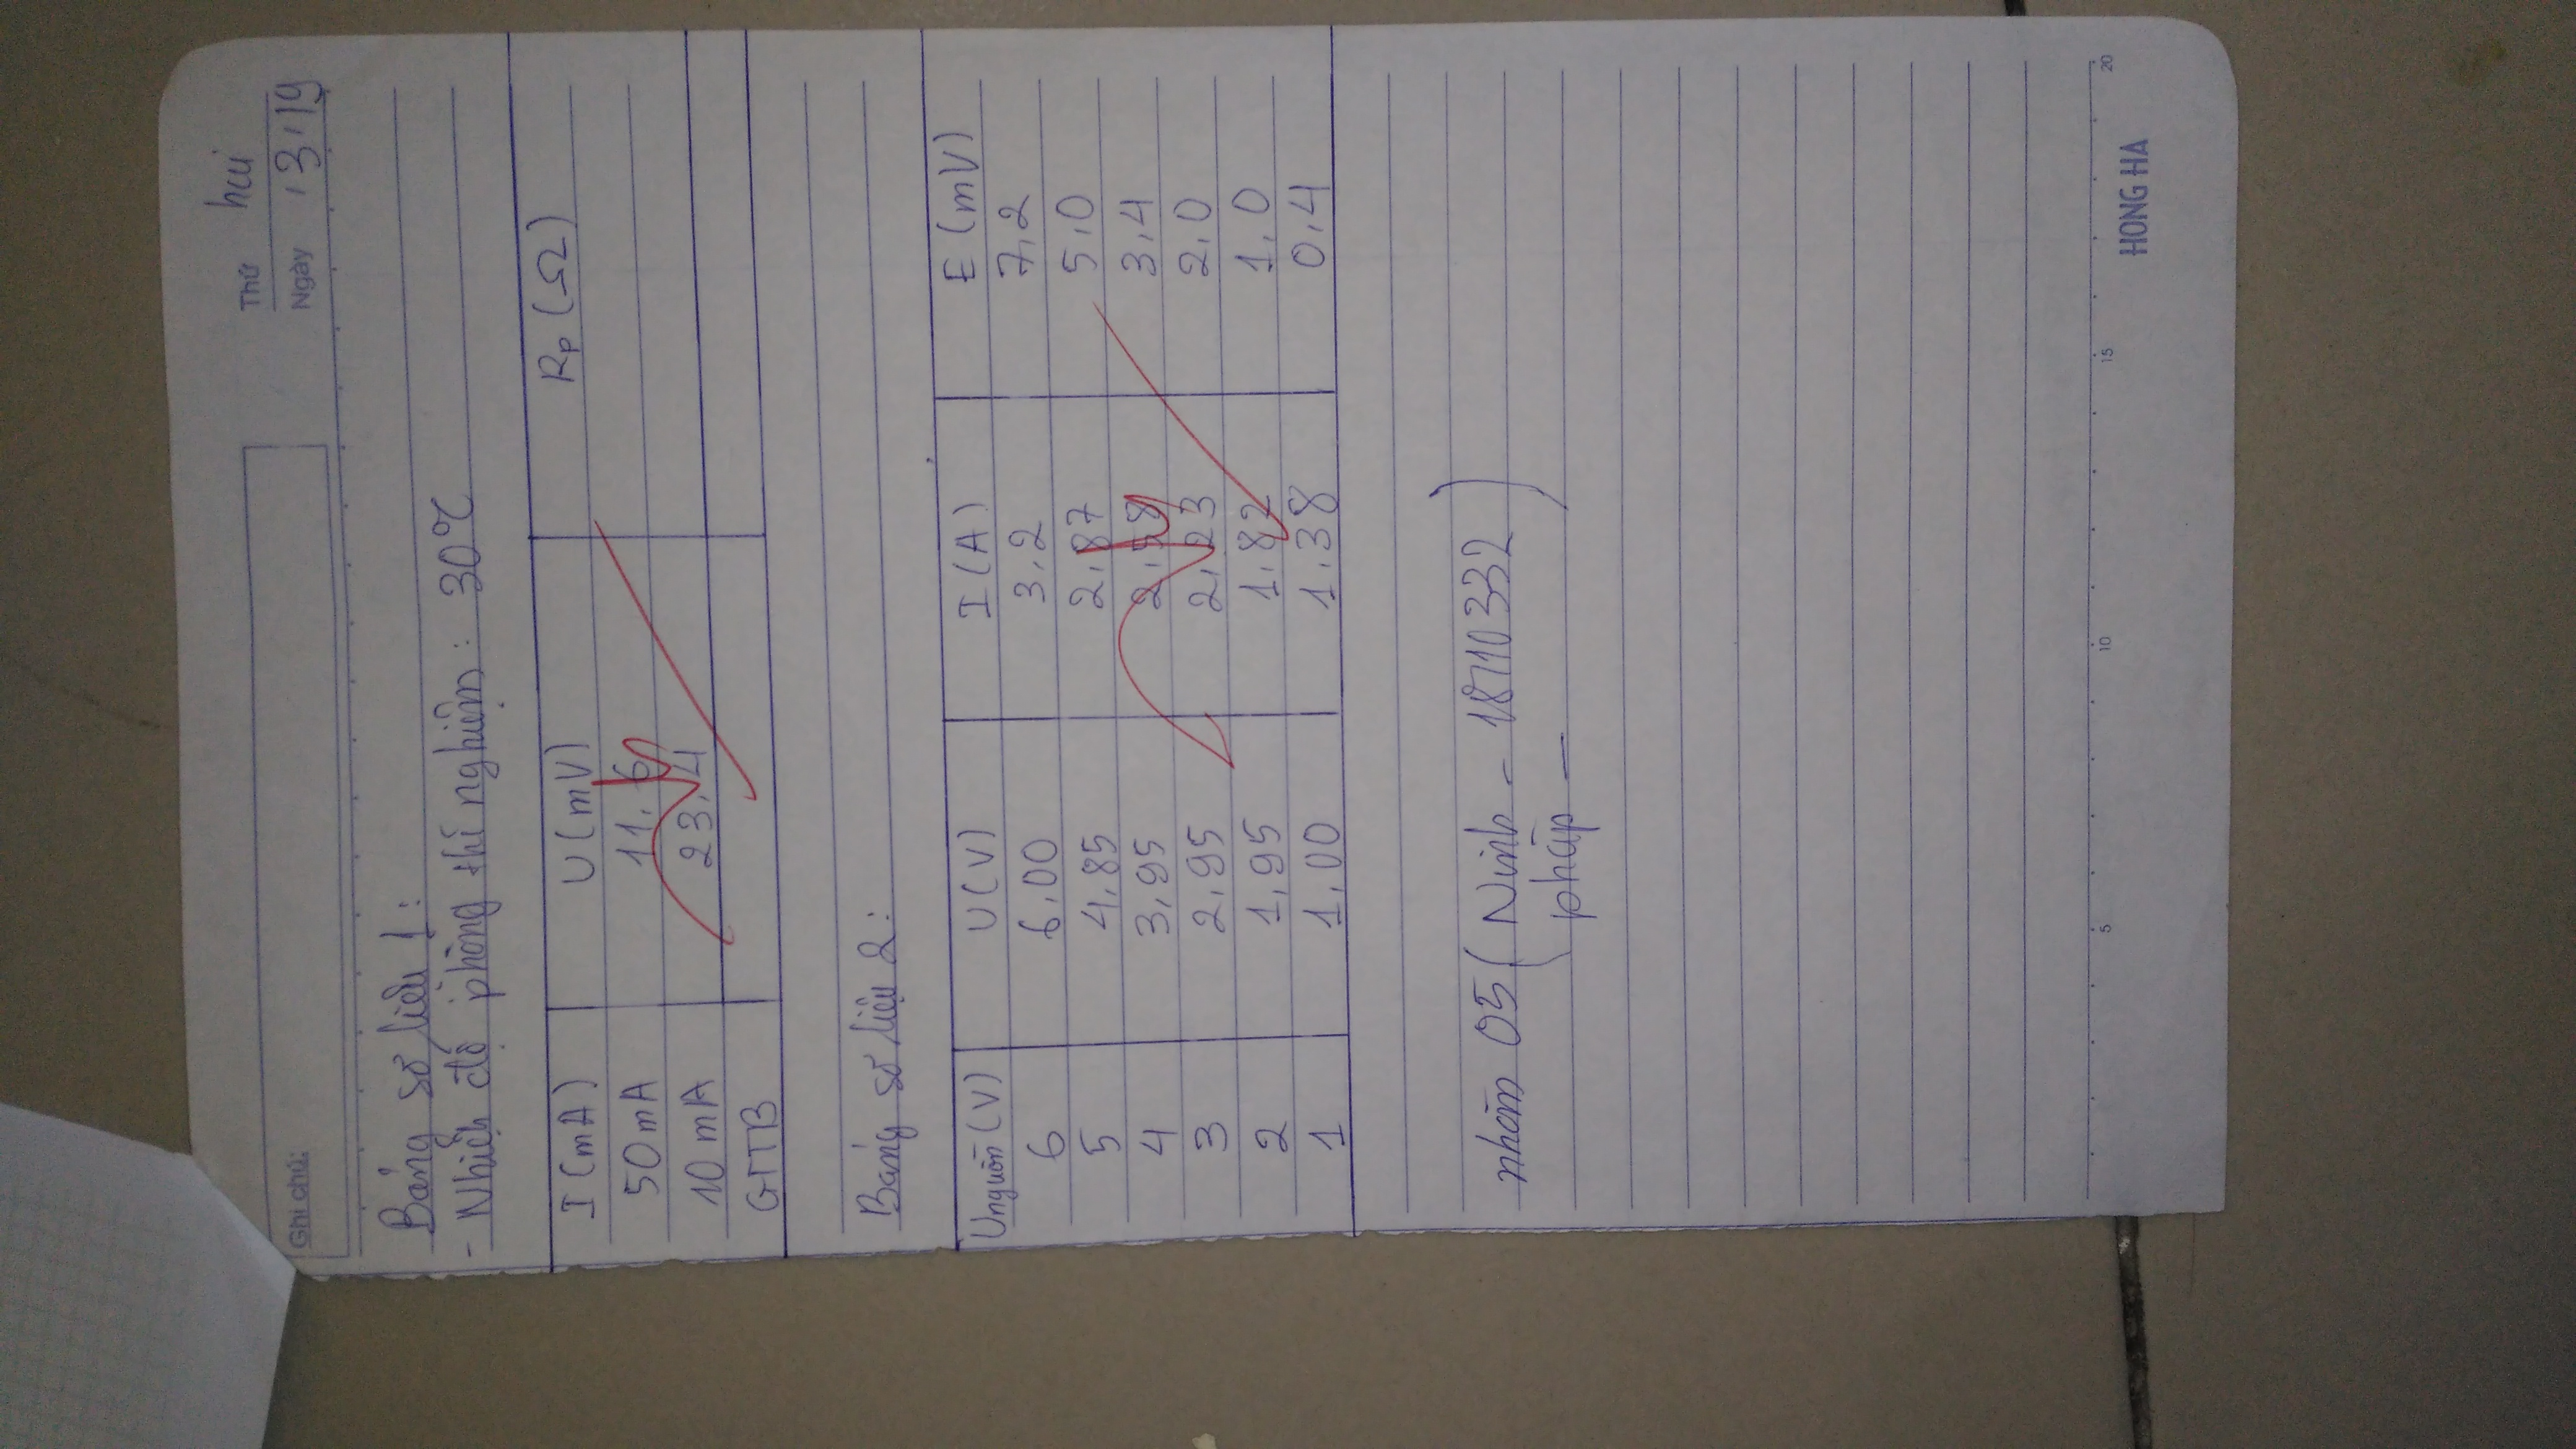 Thứ hai
Ghi chú:
Ngày / 3 / 19
Bảng số liệu 1:
- Nhiệt độ phòng thí nghiệm: 30°C
I (mA) U (mV) Rp (Ω)
50 mA 11,6
10 mA 23,4
GTTB
Bảng số liệu 2:
Unguồn (V) U (V) I (A) E (mV)
6 6,00 3,2 7,2
5 4,85 2,87 5,0
4 3,95 2,58 3,4
3 2,95 2,23 2,0
2 1,95 1,82 1,0
1 1,00 1,38 0,4
nhóm 05 ( Ninh - 18710332 )
pháp —
5 10 15 20
HONG HA